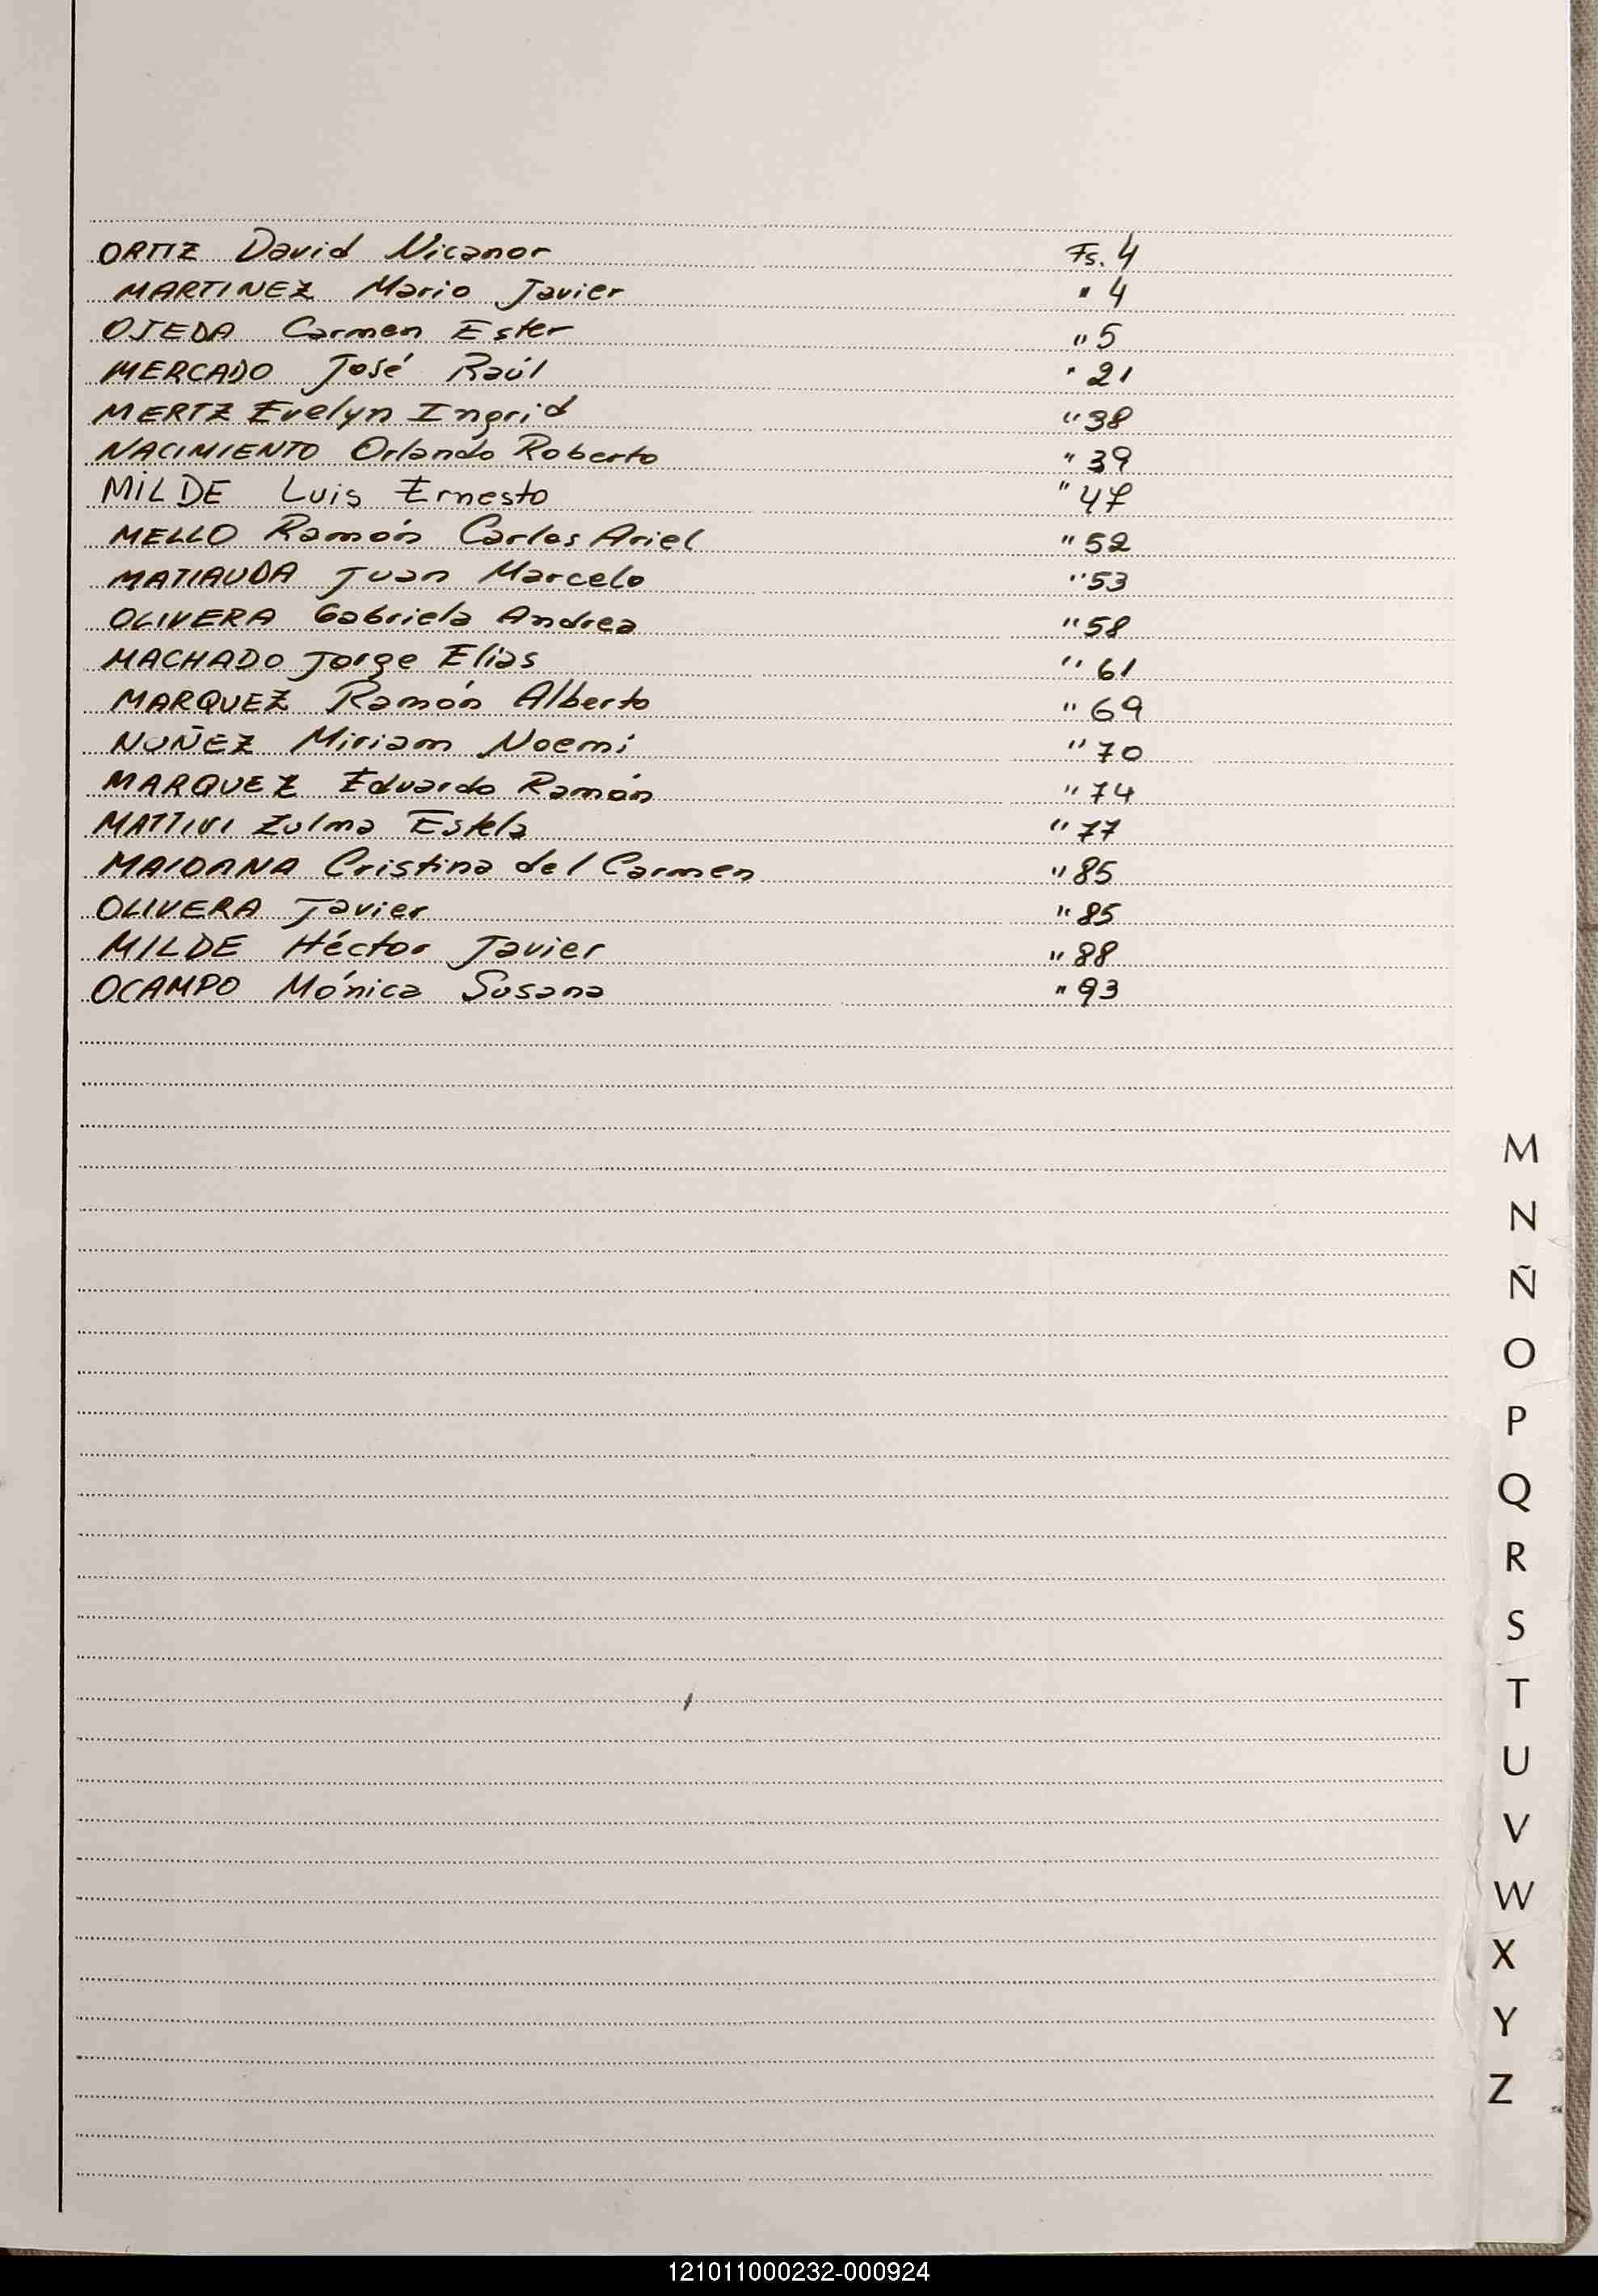 ORTIZ David Nicanor Fs. 4
MARTINEZ Mario Javier " 4
OJEDA Carmen Ester " 5
MERCADO José Raúl " 21
MERTZ Evelyn Ingrid " 38
NACIMIENTO Orlando Roberto " 39
MILDE Luis Ernesto " 47
MELLO Ramón Carlos Ariel " 52
MATIAUDA Juan Marcelo " 53
OLIVERA Gabriela Andrea " 58
MACHADO Jorge Elias " 61
MARQUEZ Ramón Alberto " 69
NUÑEZ Miriam Noemi " 70
MARQUEZ Eduardo Ramón " 74
MATTIVI Zulma Estela " 77
MAIDANA Cristina del Carmen " 85
OLIVERA Javier " 85
MILDE Héctor Javier " 88
OCAMPO Mónica Susana " 93
M
N
Ñ
O
P
Q
R
S
T
U
V
W
X
Y
Z
121011000232-000924